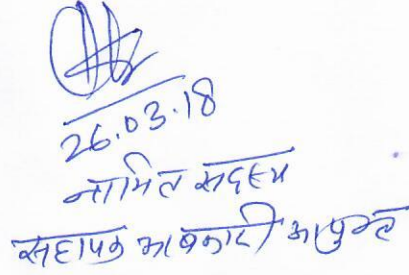 26.03.18
नामित सदस्य
सहायक आबकारी आयुक्त